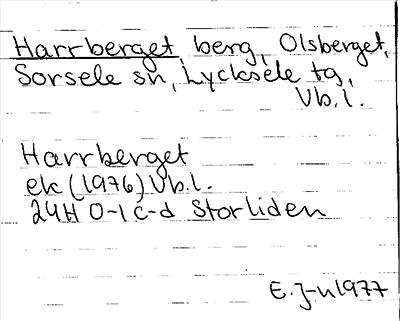 Harrberget, berg, Olsberget,
Sorsele sn, Lycksele tg,
Vb.l.
Harrberget
ek (1976) Vb.l.
24H 0-1 c-d Storliden
E. J-n 1977